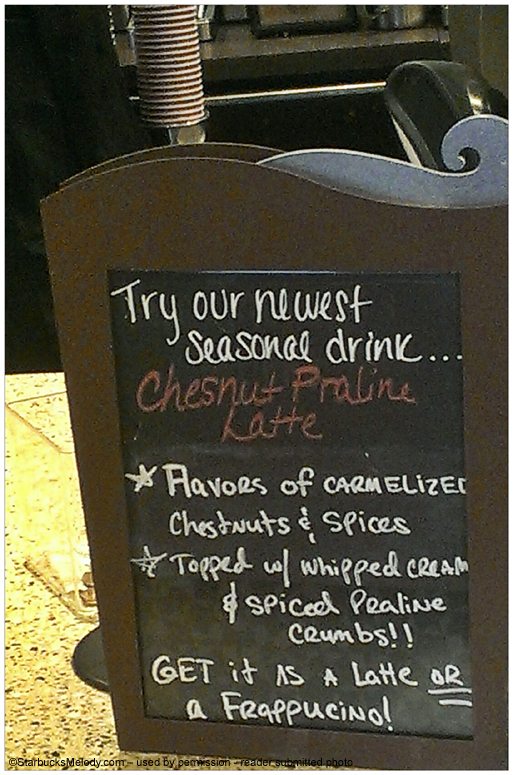 Try our newest
seasonal drink...
Chesnut Praline
Latte
Flavors of CARMELIZED
Chestnuts & Spices
Topped w/ whipped CREAM
& spiced Praline
Crumbs!!
GET it AS A Latte OR
a Frappucino!
©StarbucksMelody.com – used by permission - reader submitted photo